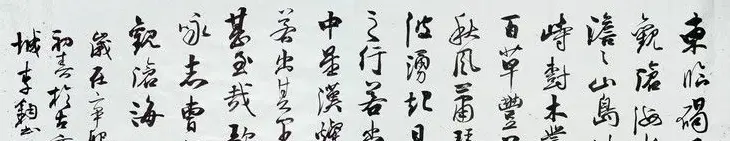 東臨碣
觀滄海
澹之山島
峙樹木叢
百草豐
秋風蕭瑟
波湧起日
之行若出
中星漢燦
若出其里
甚至哉歌
詠志曹
觀滄海
歲在辛卯
初春於古
城李